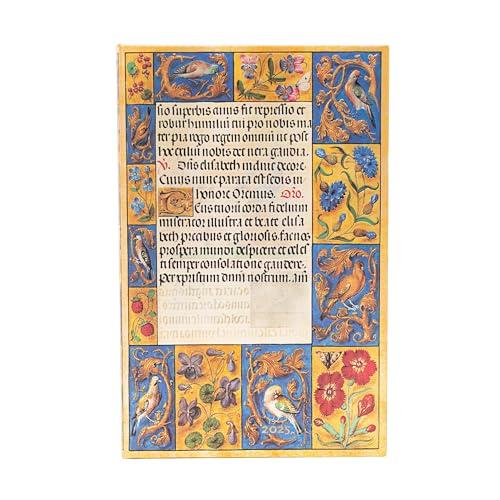 sio superbis cuius fit repressio et
robur humiliū tu pro nobis ma
ter pia rogo regem omniū ut post
hoc exiliū nobis det vera gaudia.
V. Diis elisabeth induit decore.
Cuius nunc parata est sedis in
honore Oremus. Oro.
Deus tuorū corda fidelium
miserator illustra et beate elisa
beth precibus et gloriosis fac nos
prospera mundi despicere et celes
ti semper consolatione gaudere.
Per xpristum dn̄m nostrum. Am̄
2025